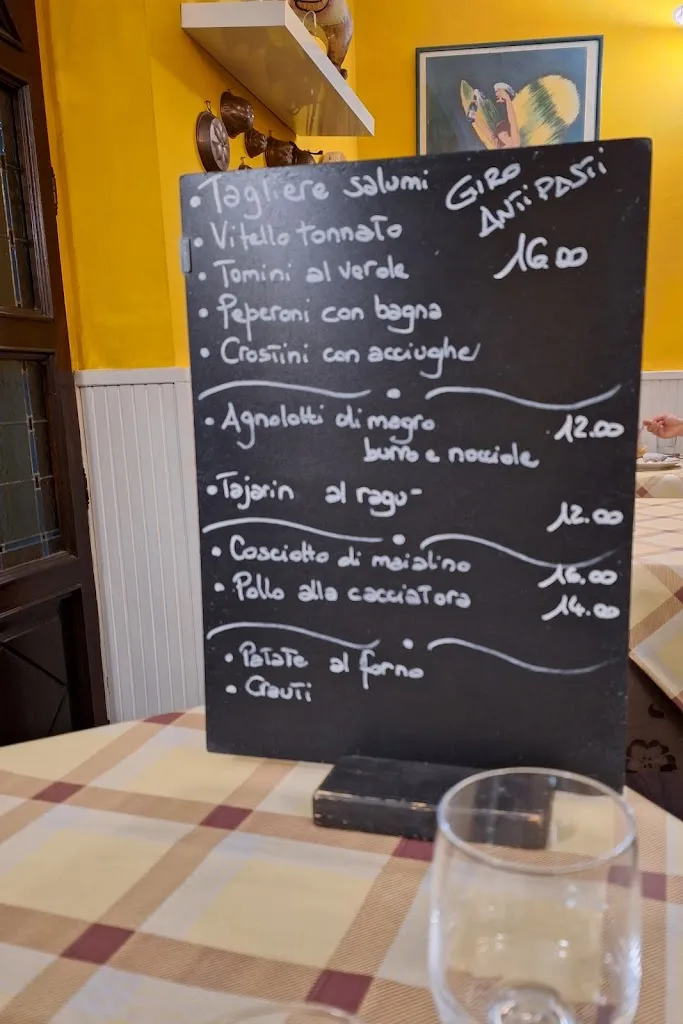 • Tagliere salumi
GIRO
ANTIPASTI
16.00
• Vitello tonnato
• Tomini al verde
• Peperoni con bagna
• Crostini con acciughe
• Agnolotti di magro 12.00
burro e nocciole
• Tajarin al ragu-
12.00
• Cosciotto di maialino 16.00
• Pollo alla cacciatora 14.00
• Patate al forno
• Crauti